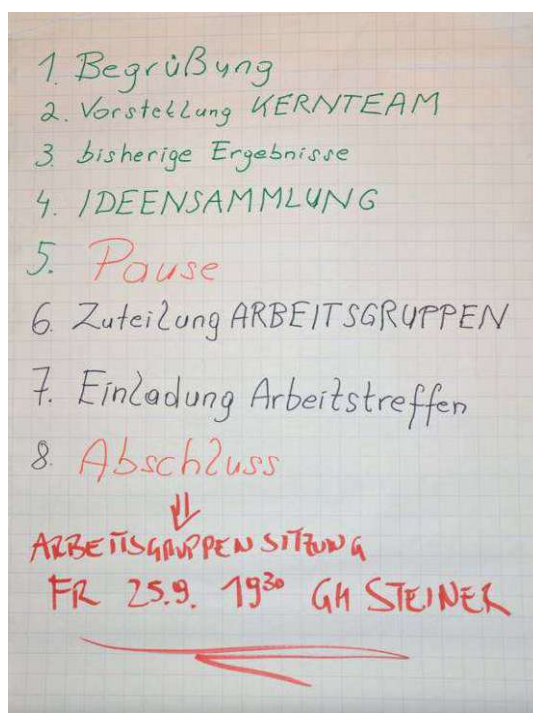 1. Begrüßung
2. Vorstellung KERNTEAM
3. bisherige Ergebnisse
4. IDEENSAMMLUNG
5. Pause
6. Zuteilung ARBEITSGRUPPEN
7. Einladung Arbeitstreffen
8. Abschluss
⇓
ARBEITSGRUPPENSITZUNG
FR 25.9. 19³⁰ GH STEINER